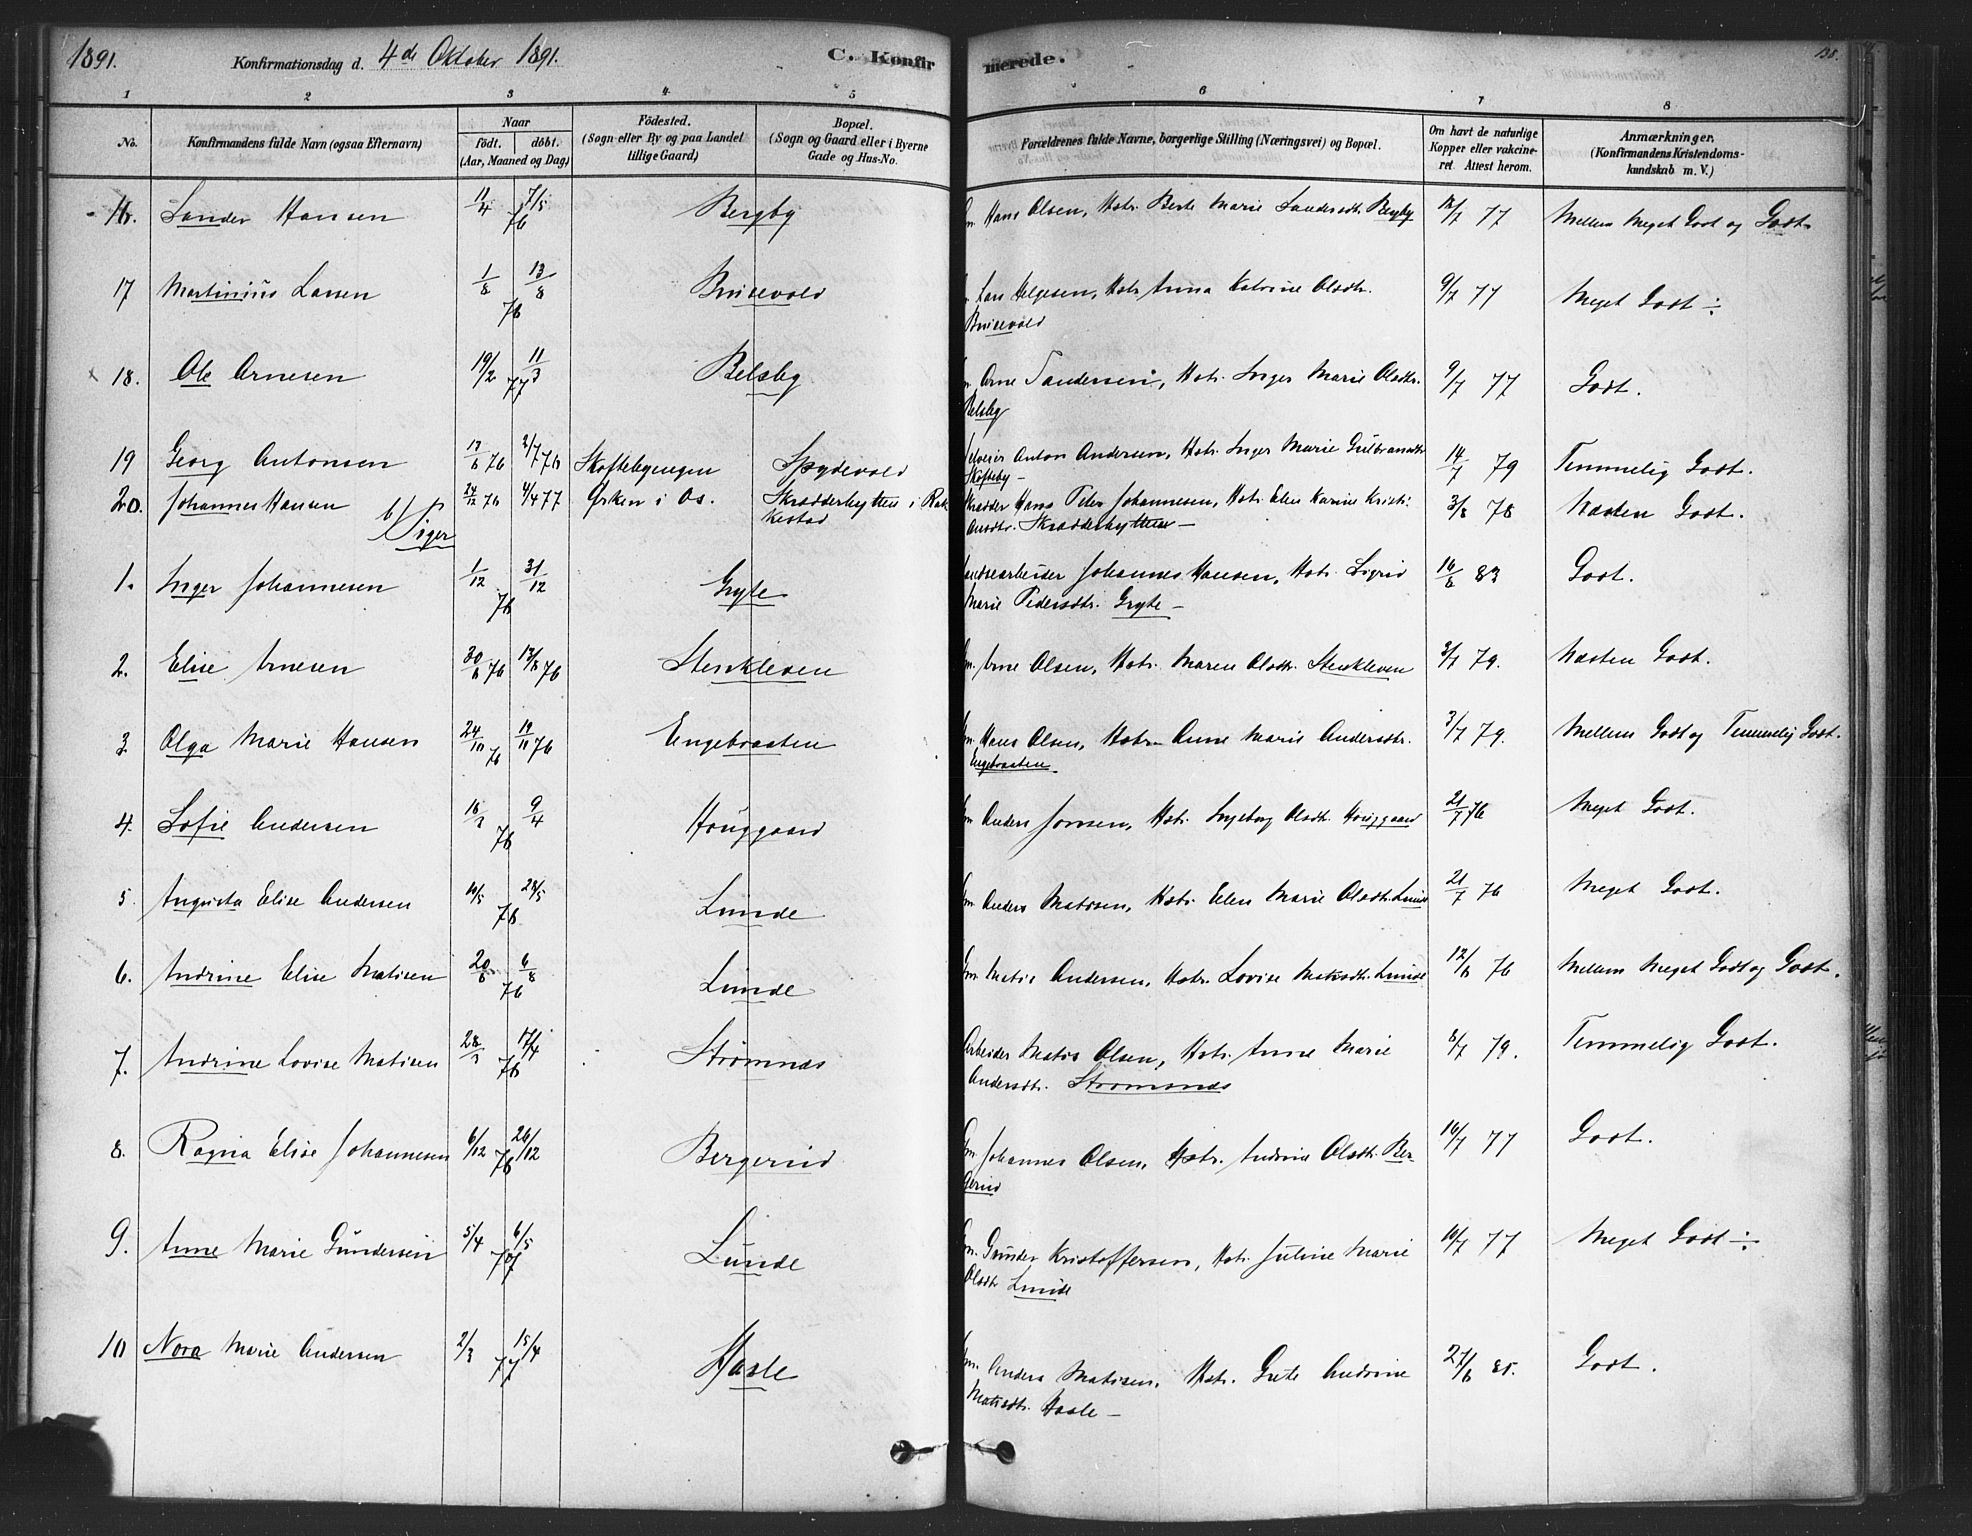 1891. Konfirmationsdag d. 4de Oktober 1891. C. Konfirmerede. 138.
1 2 3 4 5 6 7 8
No. Konfirmandens fulde Navn (ogsaa Efternavn) Naar födt. döbt. (Aar, Maaned og Dag) Födested. (Sogn eller By og paa Landet tillige Gaard) Bopæl. (Sogn og Gaard eller i Byerne Gade og Hus-No. Forældrenes fulde Navne, borgerlige Stilling (Næringsvei) og Bopæl. Om havt de naturlige Kopper eller vakcineret. Attest herom. Anmærkninger. (Konfirmandens Kristendomskundskab m. V.)
16. Sander Hansen 11/4 7/5 76 Bergby Gm. Hans Olsen, Hstr. Berte Marie Sandersdtr. Bergby 77 Mellem Meget Godt og Godt
17 Martinius Larsen 1/8 13/8 76 Lars Helgesen, Hstr. Anna Katrine Olsdtr. 9/7 77 Meget Godt ÷
18. Ole Arnesen 19/2 11/3 77 Belsby Gm Arne Sandersen, Hstr. Inger Marie Olsdtr. 9/7 77 Godt.
Belsby
19 Georg Antonsen 13/6 76 2/7 76 Skoftebyengen Spydevold Anton Andersen, Hstr. Inger Marie Gulbrandsdtr 14/7 79 Temmelig Godt.
Skofteby –
20. Johannes Hansen 24/12 76 4/4 77 Ørken i Os. Skrædderhytten i Rakkestad Skrædder Hans Peter Johannesen, Hstr. Elen Karine Kristiansdtr. Skrædderhytten – 3/8 78 Næsten Godt.
b/ Piger
1. Inger Johannesen 1/12 31/12 76 Gryte Johannes Hansen, Hstr. Sigrid 16/6 83 Godt.
Marie Pedersdtr. Gryte –
2. Elise Arnesen 30/6 76 13/8 76 Stenkleven Gm. Arne Olsen, Hstr. Maren Olsdtr. Stenkleven 3/7 79. Næsten Godt.
3 Olga Marie Hansen 24/10 76 19/11 76 Engebraaten Gm. Hans Olsen, Hstr. Anne Marie Andersdtr. 3/7 79. Mellem Godt og Temmelig Godt.
Engebraaten
4. Sofie Andersen 9/4 76 Houggaard Gm Anders Jonsen, Hstr. Ingeborg Olsdtr. Houggaard 21/7 76 Meget Godt.
5. Augusta Elise Andersen 28/5 76 Lunde Gm Anders Matisen, Hstr. Elen Marie Olsdtr. Lunde 21/7 76 Meget Godt.
6. Andrine Elise Matisen 20/6 6/8 76 Lunde Gm. Matis Andersen, Hstr. Lovise Matisdtr. Lunde 12/6 76 Mellem Meget Godt og Godt.
7. Andrine Lovise Matisen 17/4 76 Strømnæs Arbeider Matis Olsen, Hstr. Anne Marie 8/7 79. Temmelig Godt.
Andersdtr. Strømsnæs
8. Ragna Elise Johannesen 6/12 26/12 76 Bergerud Gm Johannes Olsen, Hstr. Andrine Olsdtr. Bergerud 10/7 77 Godt.
9. Anne Marie Gundersen 5/4 6/5 77 Lunde Gm. Gunder Kristoffersen, Hstr. Juline Marie 10/7 77 Meget Godt ÷
Olsdtr Lunde
10 Nora Marie Andersen 2/3 15/4 77 Hasle Gm. Anders Matisen, Hstr. Grete Andrine 27/6 85. Godt.
Matisdtr. Hasle –